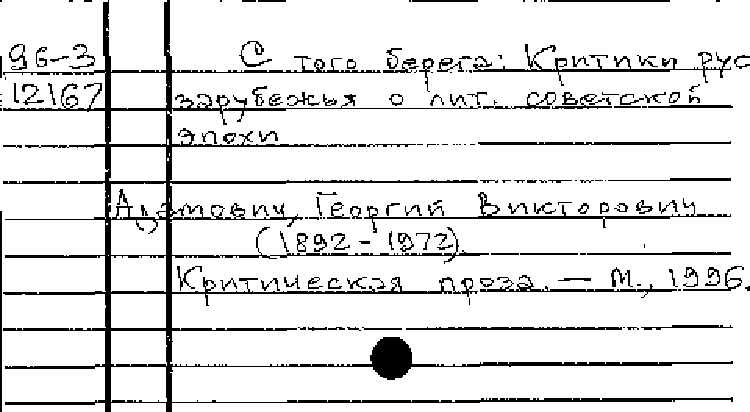 96-3 С того берега: Критики рус
12167 зарубежья о лит. советской
эпохи
Адамович, Георгий Викторович
(1892-1972).
Критическая проза. — М., 1996.